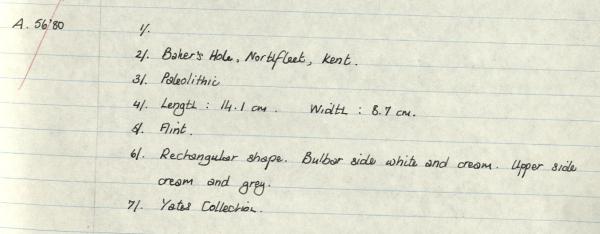 A. 56'80
1/.
2/. Baker's Hole, Northfleet, Kent.
3/. Paleolithic
4/. Length : 14.1 cm. Width : 8.7 cm.
5/. Flint.
6/. Rechangular shape. Bulbar side white and cream. Upper side
cream and grey.
7/. Yates Collection.